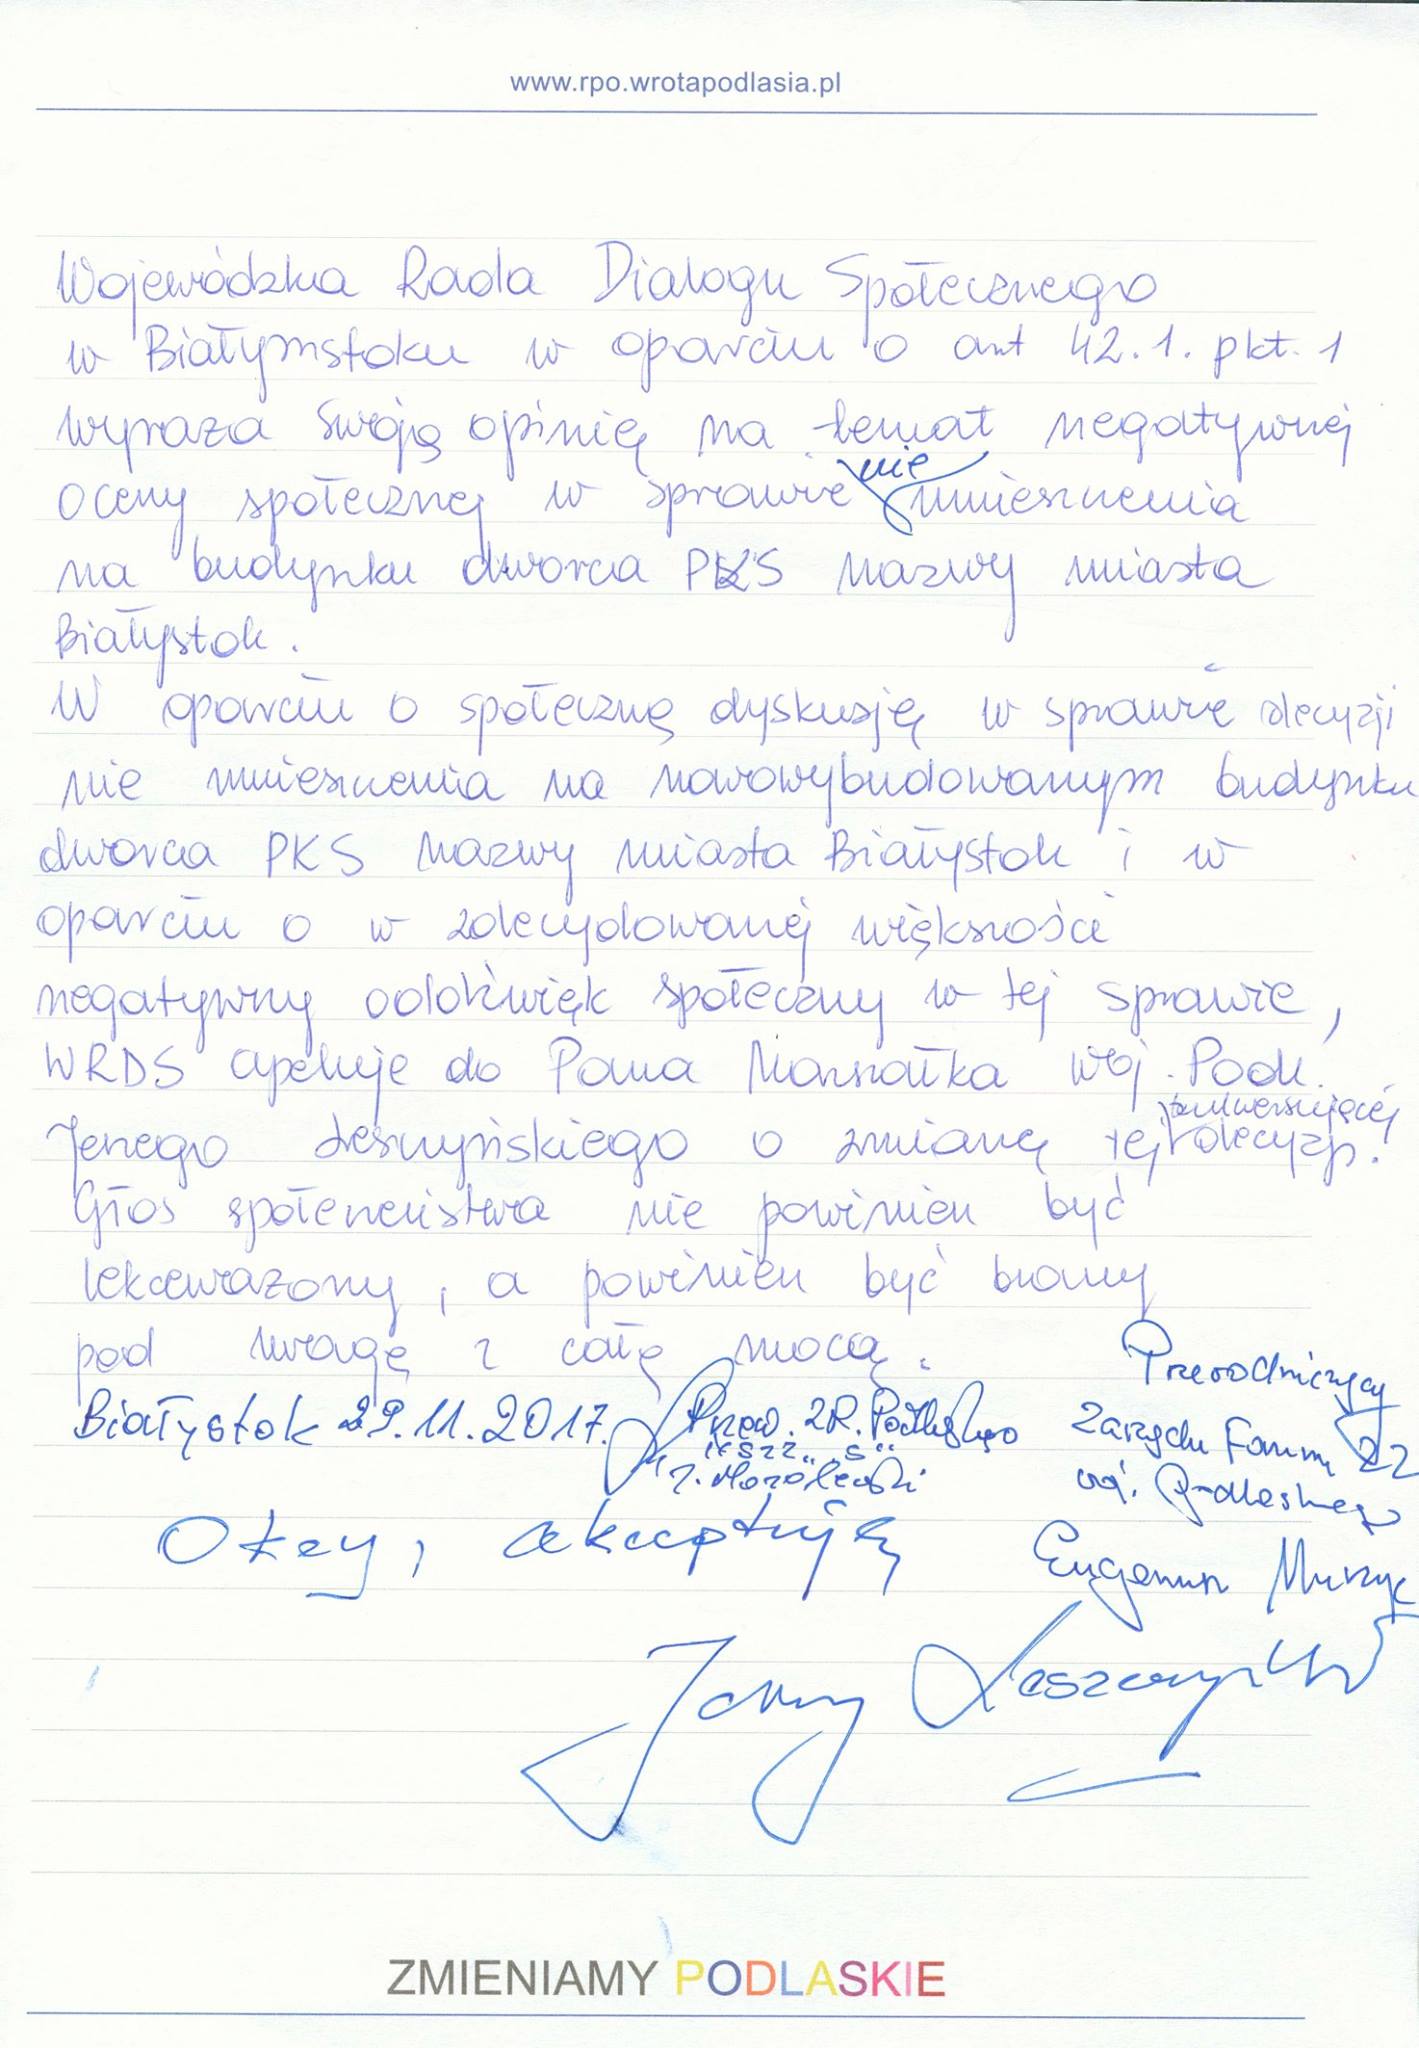 www.rpo.wrotapodlasia.pl
Wojewódzka Rada Dialogu Społecznego
w Białymstoku w oparciu o art 42.1. pkt. 1
wyraża swoją opinię na temat negatywnej
oceny społecznej w sprawie nie umieszczenia
na budynku dworca PKS nazwy miasta
Białystok.
W oparciu o społeczną dyskusję w sprawie decyzji
nie umieszczenia na nowowybudowanym budynku
dworca PKS nazwy miasta Białystok i w
oparciu o w zdecydowanej większości
negatywny oddźwięk społeczny w tej sprawie,
WRDS apeluje do Pana Marszałka woj. Podl.
bulwersującej
Jerzego Leszczyńskiego o zmianę tej decyzji!
Głos społeczeństwa nie powinien być
lekceważony, a powinien być brany
pod uwagę z całą mocą.
Przewodniczący
Białystok 29.11.2017. Przew. ZR. Podlaskiego
Zarządu Forum ZZ
NSZZ „S"
woj. Podlaskiego
J. Mozolewski
Okey, akceptuję
Eugeniusz Muszyc
Jerzy Leszczyński
ZMIENIAMY PODLASKIE